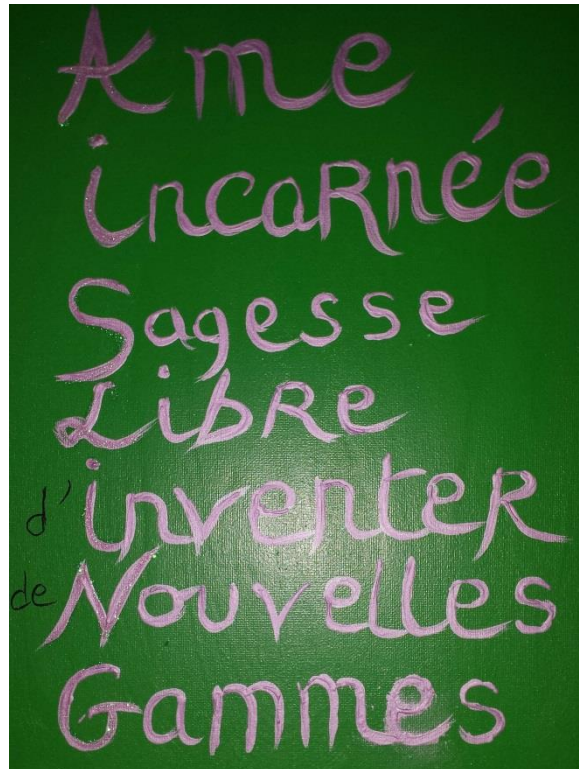 Ame
incaRnée
Sagesse
LibRe
d'inventeR
de Nouvelles
Gammes